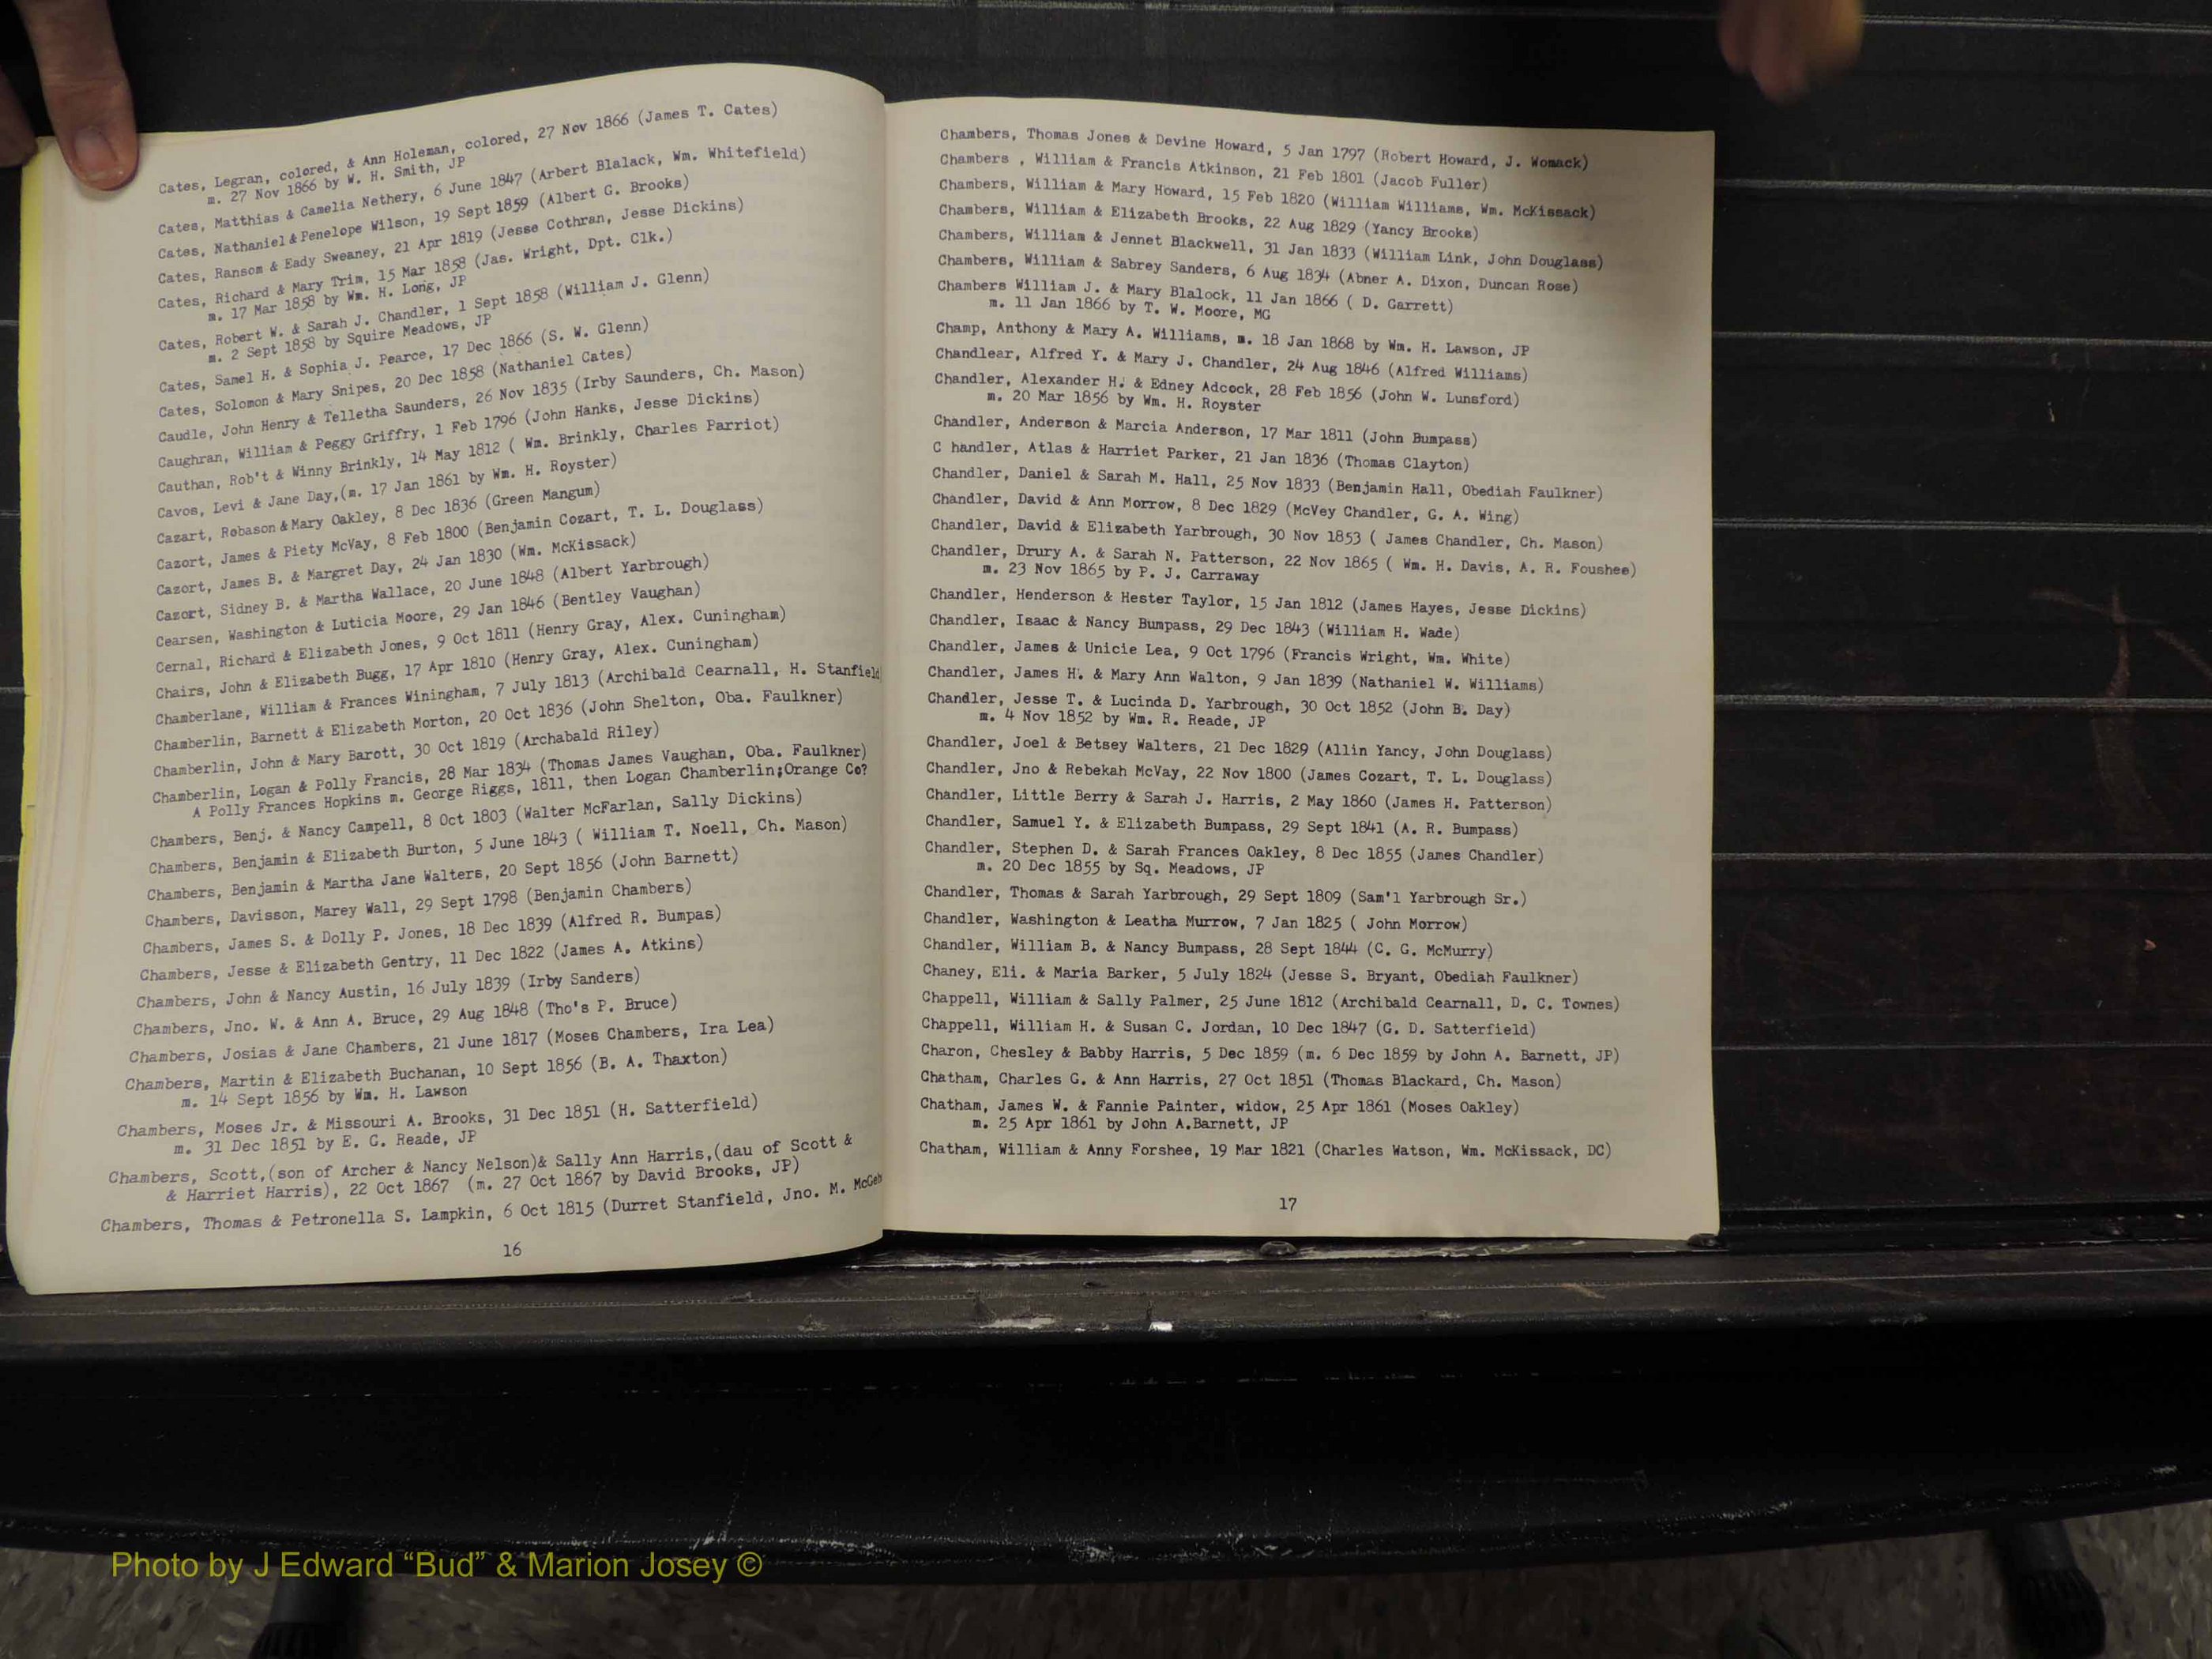 Cates, Legran, colored, & Ann Holeman, colored, 27 Nov 1866 (James T. Cates)
m. 27 Nov 1866 by W. H. Smith, JP
Cates, Matthias & Camelia Nethery, 6 June 1847 (Arbert Blalack, Wm. Whitefield)
Cates, Nathaniel & Penelope Wilson, 19 Sept 1859 (Albert G. Brooks)
Cates, Ransom & Eady Sweaney, 21 Apr 1819 (Jesse Cothran, Jesse Dickins)
Cates, Richard & Mary Trim, 15 Mar 1858 (Jas. Wright, Dpt. Clk.)
m. 17 Mar 1858 by Wm. H. Long, JP
Cates, Robert W. & Sarah J. Chandler, 1 Sept 1858 (William J. Glenn)
m. 2 Sept 1858 by Squire Meadows, JP
Cates, Samel H. & Sophia J. Pearce, 17 Dec 1866 (S. W. Glenn)
Cates, Solomon & Mary Snipes, 20 Dec 1858 (Nathaniel Cates)
Caudle, John Henry & Telletha Saunders, 26 Nov 1835 (Irby Saunders, Ch. Mason)
Caughran, William & Peggy Griffry, 1 Feb 1796 (John Hanks, Jesse Dickins)
Cauthan, Rob't & Winny Brinkly, 14 May 1812 ( Wm. Brinkly, Charles Parriot)
Cavos, Levi & Jane Day,(m. 17 Jan 1861 by Wm. H. Royster)
Cazart, Robason & Mary Oakley, 8 Dec 1836 (Green Mangum)
Cazort, James & Piety McVay, 8 Feb 1800 (Benjamin Cozart, T. L. Douglass)
Cazort, James B. & Margret Day, 24 Jan 1830 (Wm. McKissack)
Cazort, Sidney B. & Martha Wallace, 20 June 1848 (Albert Yarbrough)
Cearsen, Washington & Luticia Moore, 29 Jan 1846 (Bentley Vaughan)
Cernal, Richard & Elizabeth Jones, 9 Oct 1811 (Henry Gray, Alex. Cuningham)
Chairs, John & Elizabeth Bugg, 17 Apr 1810 (Henry Gray, Alex. Cuningham)
Chamberlane, William & Frances Winingham, 7 July 1813 (Archibald Cearnall, H. Stanfield
Chamberlin, Barnett & Elizabeth Morton, 20 Oct 1836 (John Shelton, Oba. Faulkner)
Chamberlin, John & Mary Barott, 30 Oct 1819 (Archabald Riley)
Chamberlin, Logan & Polly Francis, 28 Mar 1834 (Thomas James Vaughan, Oba. Faulkner)
A Polly Frances Hopkins m. George Riggs, 1811, then Logan Chamberlin;Orange Co?
Chambers, Benj. & Nancy Campell, 8 Oct 1803 (Walter McFarlan, Sally Dickins)
Chambers, Benjamin & Elizabeth Burton, 5 June 1843 ( William T. Noell, Ch. Mason)
Chambers, Benjamin & Martha Jane Walters, 20 Sept 1856 (John Barnett)
Chambers, Davisson, Marey Wall, 29 Sept 1798 (Benjamin Chambers)
Chambers, James S. & Dolly P. Jones, 18 Dec 1839 (Alfred R. Bumpas)
Chambers, Jesse & Elizabeth Gentry, 11 Dec 1822 (James A. Atkins)
Chambers, John & Nancy Austin, 16 July 1839 (Irby Sanders)
Chambers, Jno. W. & Ann A. Bruce, 29 Aug 1848 (Tho's P. Bruce)
Chambers, Josias & Jane Chambers, 21 June 1817 (Moses Chambers, Ira Lea)
Chambers, Martin & Elizabeth Buchanan, 10 Sept 1856 (B. A. Thaxton)
m. 14 Sept 1856 by Wm. H. Lawson
Chambers, Moses Jr. & Missouri A. Brooks, 31 Dec 1851 (H. Satterfield)
m. 31 Dec 1851 by E. G. Reade, JP
Chambers, Scott,(son of Archer & Nancy Nelson)& Sally Ann Harris,(dau of Scott &
& Harriet Harris), 22 Oct 1867 (m. 27 Oct 1867 by David Brooks, JP)
Chambers, Thomas & Petronella S. Lampkin, 6 Oct 1815 (Durret Stanfield, Jno. M. McGeh
16
Chambers, Thomas Jones & Devine Howard, 5 Jan 1797 (Robert Howard, J. Womack)
Chambers , William & Francis Atkinson, 21 Feb 1801 (Jacob Fuller)
Chambers, William & Mary Howard, 15 Feb 1820 (William Williams, Wm. McKissack)
Chambers, William & Elizabeth Brooks, 22 Aug 1829 (Yancy Brooks)
Chambers, William & Jennet Blackwell, 31 Jan 1833 (William Link, John Douglass)
Chambers, William & Sabrey Sanders, 6 Aug 1834 (Abner A. Dixon, Duncan Rose)
Chambers William J. & Mary Blalock, 11 Jan 1866 ( D. Garrett)
m. 11 Jan 1866 by T. W. Moore, MG
Champ, Anthony & Mary A. Williams, m. 18 Jan 1868 by Wm. H. Lawson, JP
Chandlear, Alfred Y. & Mary J. Chandler, 24 Aug 1846 (Alfred Williams)
Chandler, Alexander H. & Edney Adcock, 28 Feb 1856 (John W. Lunsford)
m. 20 Mar 1856 by Wm. H. Royster
Chandler, Anderson & Marcia Anderson, 17 Mar 1811 (John Bumpass)
C handler, Atlas & Harriet Parker, 21 Jan 1836 (Thomas Clayton)
Chandler, Daniel & Sarah M. Hall, 25 Nov 1833 (Benjamin Hall, Obediah Faulkner)
Chandler, David & Ann Morrow, 8 Dec 1829 (McVey Chandler, G. A. Wing)
Chandler, David & Elizabeth Yarbrough, 30 Nov 1853 ( James Chandler, Ch. Mason)
Chandler, Drury A. & Sarah N. Patterson, 22 Nov 1865 ( Wm. H. Davis, A. R. Foushee)
m. 23 Nov 1865 by P. J. Carraway
Chandler, Henderson & Hester Taylor, 15 Jan 1812 (James Hayes, Jesse Dickins)
Chandler, Isaac & Nancy Bumpass, 29 Dec 1843 (William H. Wade)
Chandler, James & Unicie Lea, 9 Oct 1796 (Francis Wright, Wm. White)
Chandler, James H. & Mary Ann Walton, 9 Jan 1839 (Nathaniel W. Williams)
Chandler, Jesse T. & Lucinda D. Yarbrough, 30 Oct 1852 (John B. Day)
m. 4 Nov 1852 by Wm. R. Reade, JP
Chandler, Joel & Betsey Walters, 21 Dec 1829 (Allin Yancy, John Douglass)
Chandler, Jno & Rebekah McVay, 22 Nov 1800 (James Cozart, T. L. Douglass)
Chandler, Little Berry & Sarah J. Harris, 2 May 1860 (James H. Patterson)
Chandler, Samuel Y. & Elizabeth Bumpass, 29 Sept 1841 (A. R. Bumpass)
Chandler, Stephen D. & Sarah Frances Oakley, 8 Dec 1855 (James Chandler)
m. 20 Dec 1855 by Sq. Meadows, JP
Chandler, Thomas & Sarah Yarbrough, 29 Sept 1809 (Sam'l Yarbrough Sr.)
Chandler, Washington & Leatha Murrow, 7 Jan 1825 ( John Morrow)
Chandler, William B. & Nancy Bumpass, 28 Sept 1844 (C. G. McMurry)
Chaney, Eli. & Maria Barker, 5 July 1824 (Jesse S. Bryant, Obediah Faulkner)
Chappell, William & Sally Palmer, 25 June 1812 (Archibald Cearnall, D. C. Townes)
Chappell, William H. & Susan C. Jordan, 10 Dec 1847 (G. D. Satterfield)
Charon, Chesley & Babby Harris, 5 Dec 1859 (m. 6 Dec 1859 by John A. Barnett, JP)
Chatham, Charles G. & Ann Harris, 27 Oct 1851 (Thomas Blackard, Ch. Mason)
Chatham, James W. & Fannie Painter, widow, 25 Apr 1861 (Moses Oakley)
m. 25 Apr 1861 by John A.Barnett, JP
Chatham, William & Anny Forshee, 19 Mar 1821 (Charles Watson, Wm. McKissack, DC)
17
Photo by J Edward “Bud” & Marion Josey ©